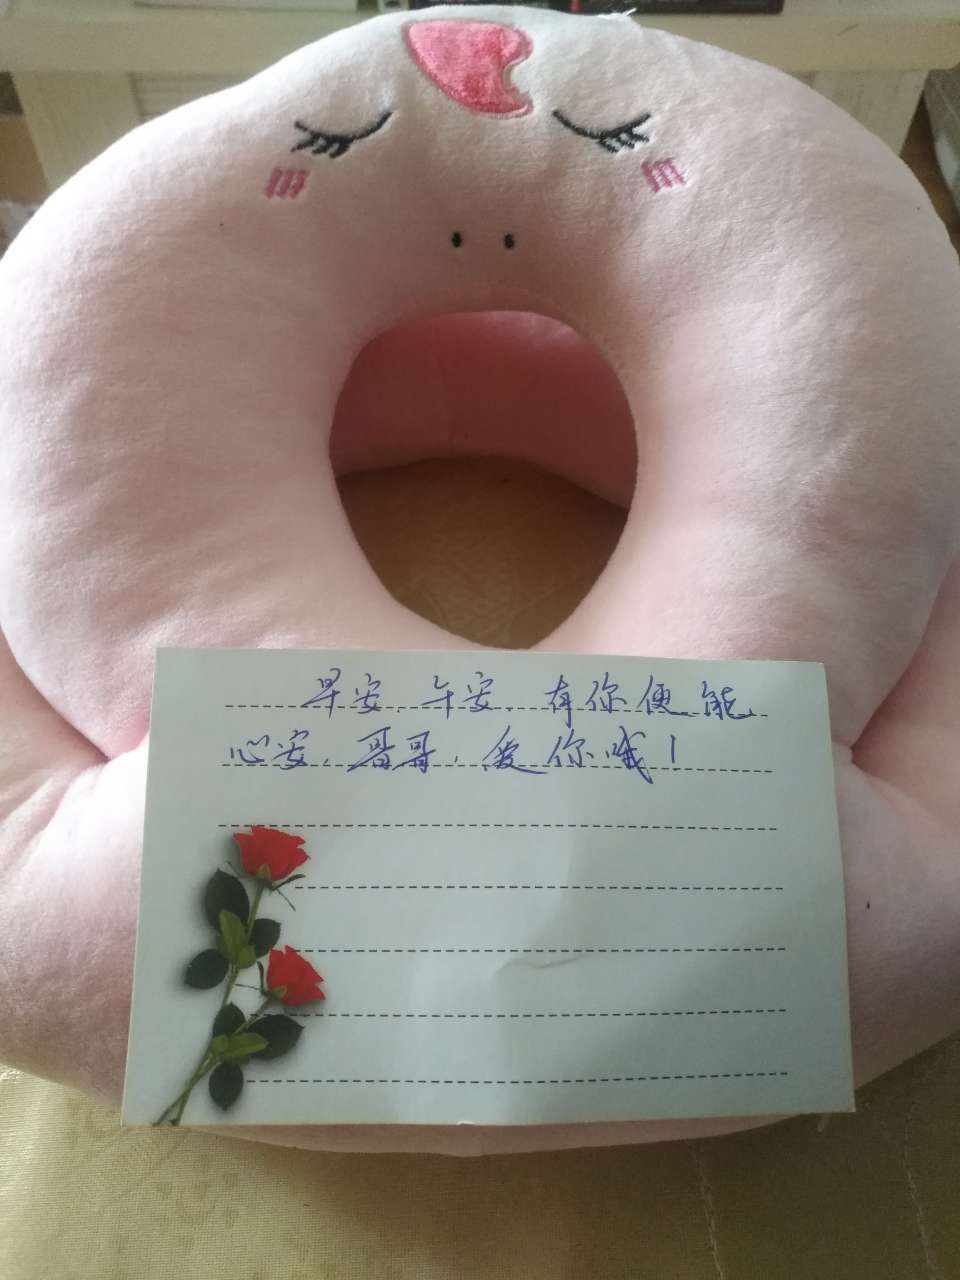 早安，午安，有你便能
心安，哥哥，爱你哦！